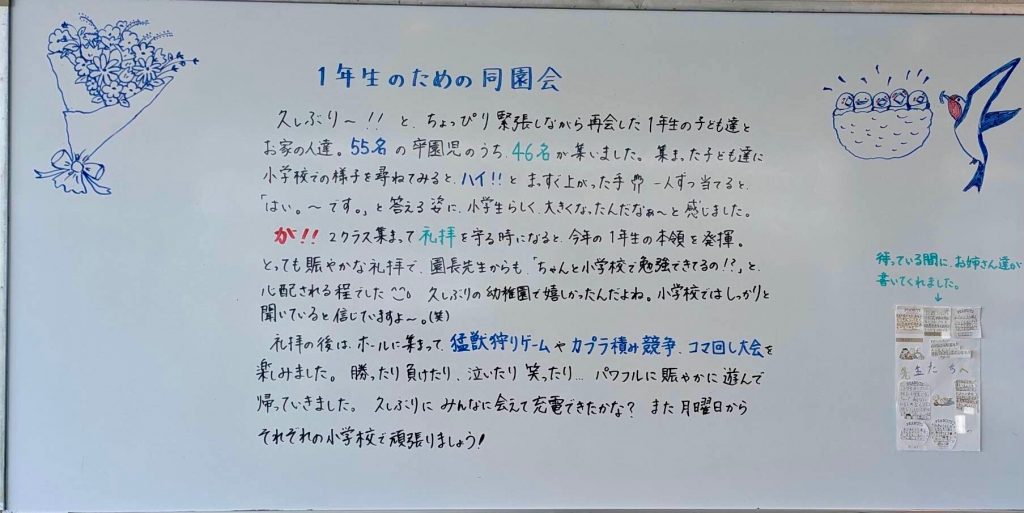 1年生のための同園会
久しぶり〜!! と、ちょっぴり緊張しながら再会した1年生の子ども達と
お家の人達。55名の卒園児のうち、46名が集いました。集まった子ども達に
小学校での様子を尋ねてみると、ハイ!!とまっすぐ上がった手 一人ずつ当てると、
「はい。〜です。」と答える姿に、小学生らしく、大きくなったんだなぁ〜と感じました。
が!! 2クラス集まって礼拝を守る時になると、今年の1年生の本領を発揮。
とっても賑やかな礼拝で、園長先生からも、「ちゃんと小学校で勉強できてるの!?」と、
心配される程でした 久しぶりの幼稚園で嬉しかったんだよね。小学校ではしっかりと
聞いていると信じていますよ〜。(笑)
礼拝の後は、ホールに集まって、猛獣狩りゲームやカプラ積み競争、コマ回し大会を
楽しみました。勝ったり負けたり、泣いたり笑ったり… パワフルに賑やかに遊んで
帰っていきました。久しぶりにみんなに会えて充電できたかな? また月曜日から
それぞれの小学校で頑張りましょう!
待っている間に、お姉さん達が
書いてくれました。
先生たちへ